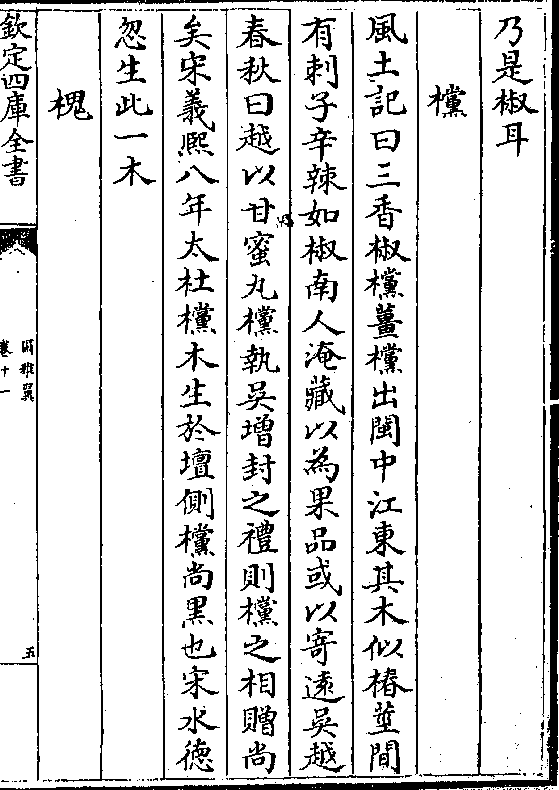 乃是椒耳
欓
風土記曰三香椒欓薑欓出閩中江東其木似樁莖間
有刺子辛辣如椒南人淹藏以為果品或以寄逺吳越
春秋曰越以甘蜜丸欓執吳增封之禮則欓之相贈尚
矣宋義熙八年太杜欓木生於壇側欓尚黑也宋水徳
忽生此一木
槐
欽定四庫全書
爾雅翼
卷十一
五